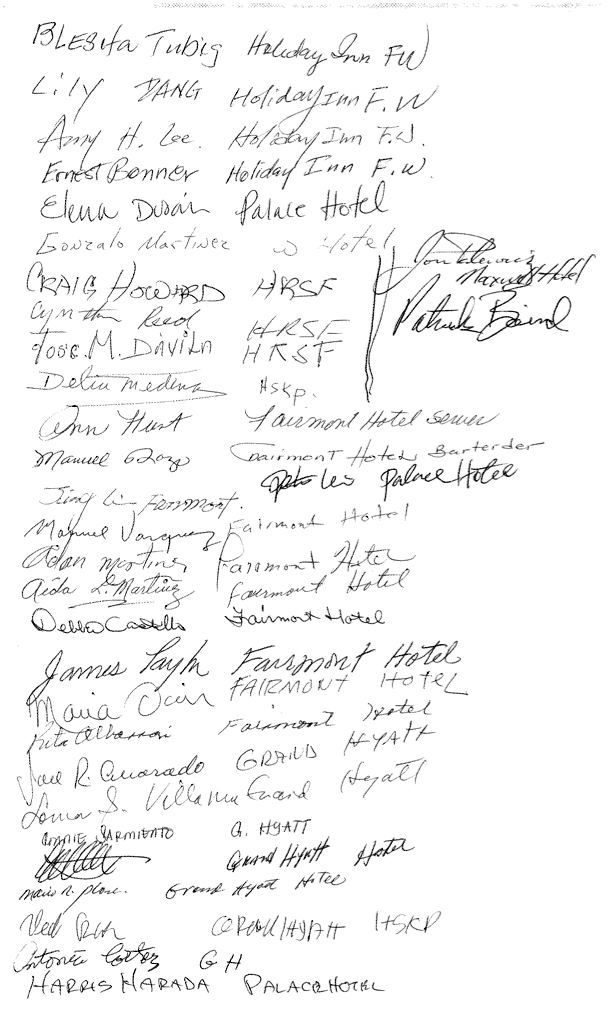 BLESita Tubig Holiday Inn FW
Lily DANG Holiday Inn F.W
Amy H. Lee. Holiday Inn F.W.
Ernest Bonner Holiday Inn F.W.
Elena Durán Palace Hotel
Gonzalo Martinez W Hotel
Maxwell Hotel
CRAIG HOWARD HRSF
Patrick Baird
Cynthia Reed HRSF
Jose. M. DAViLA HRSF
Delia Medina HSKp.
Ann Hunt Fairmont Hotel server
Manuel Fairmont Hotel Bartender
Palace Hotel
Jing Li Fairmont.
Manuel Vasquez Fairmont Hotel
Adan Martinez Fairmont Hotel
Aida L. Martinez Fairmont Hotel
Debbie Castillo Fairmont Hotel
James Taylor Fairmont Hotel
Maria FAIRMONT HOTEL
Rita Fairmont Hotel
R. Alvarado GRAND HYATT
S. Villa Grand Hyatt
CONNIE SARMIENTO G. HYATT
Grand Hyatt Hotel
Mario R. Grand Hyatt Hotel
HYATT HSKP
Antonia Cortez GH
HARRIS HARADA PALACE HOTEL